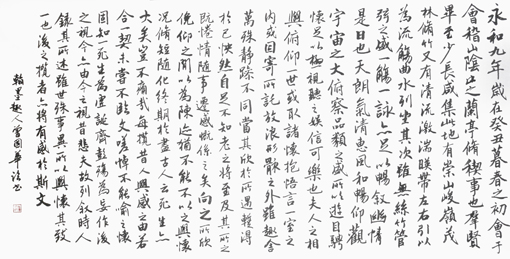 永和九年歲在癸丑暮春之初會于
會稽山陰之蘭亭脩稧事也羣賢
畢至少長咸集此地有崇山峻嶺茂
林脩竹又有清流激湍暎帶左右引以
為流觴曲水列坐其次雖無絲竹管
弦之盛一觴一詠亦足以暢叙幽情
是日也天朗氣清惠風和暢仰觀
宇宙之大俯察品類之盛所以遊目騁
懷足以極視聽之娛信可樂也夫人之相
與俯仰一世或取諸懷抱悟言一室之
內或因寄所託放浪形骸之外雖趣舍
萬殊靜躁不同當其欣於所遇暫得
於己怏然自足不知老之將至及其所之
既惓情隨事遷感慨係之矣向之所欣
俛仰之間以為陳迹猶不能不以之興懷
況脩短隨化終期於盡古人云死生亦
大矣豈不痛哉每攬昔人興感之由若
合一契未嘗不臨文嗟悼不能喻之懷
固知一死生為虛誕齊彭殤為妄作後
之視今亦由今之視昔悲夫故列叙時人
錄其所述雖世殊事異所以興懷其致
一也後之攬者亦將有感於斯文
翰墨趣人曾國華